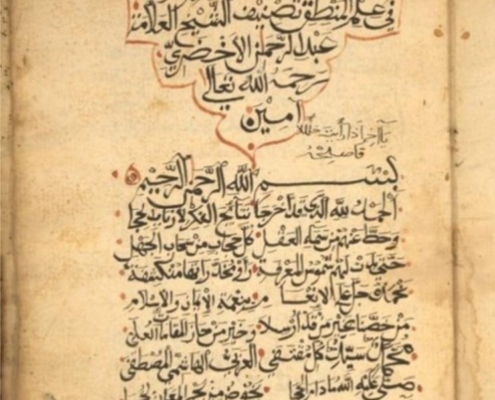 في علم المنطق تصنيف الشيخ العلامة
عبد الرحمن الاخضري
رحمه الله تعالى
امين
بسم الله الرحمن الرحيم
الحمد لله الذي قد اخرجا نتايج الفكر لارباب الحجا
وحط عنهم من سما العقل كل حجاب من سحاب الجهل
حتى بدت لهم شموس المعرفة راوا مخدراتها منكشفة
نحمده جل على الانعام بنعمة الايمان والاسلام
من خصنا بخير من قد ارسلا وخير من حاز المقامات العلى
محمد سيد كل مقتفى العربي الهاشمي المصطفى
صلى عليه الله ما دام الحجا يخوض من بحر المعاني لججا